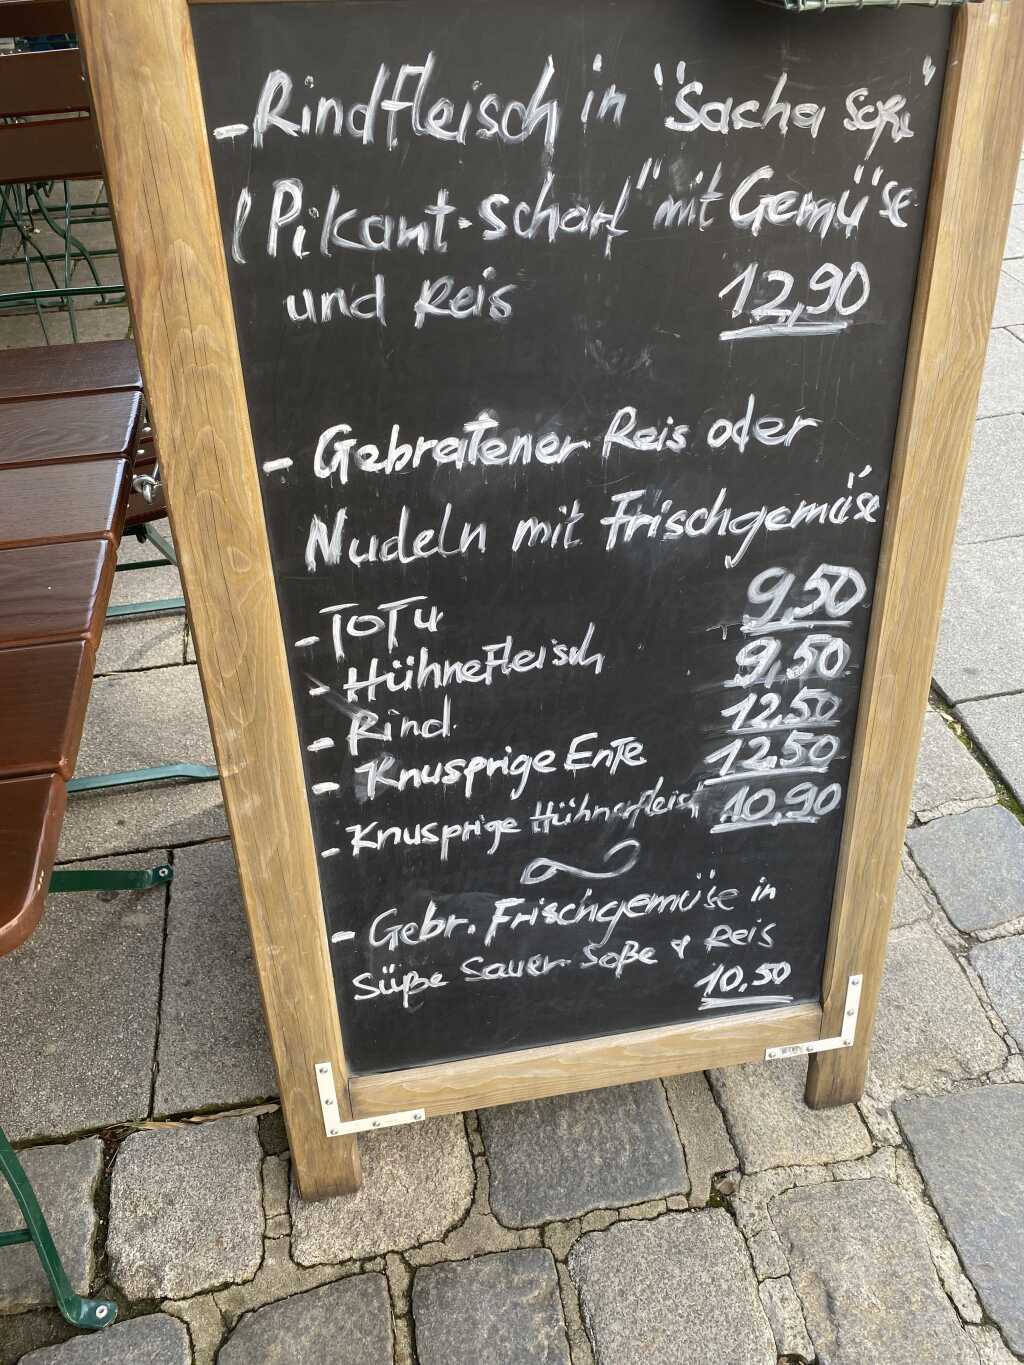 - Rindfleisch in "Sacha Soße"
(Pikant-Scharf" mit Gemüse
und Reis 12,90
- Gebratener Reis oder
Nudeln mit Frischgemüse
- ToTu 9,50
- Hühnefleisch 9,50
- Rind 12,50
- Knusprige Ente 12,50
- Knusprige Hühnerfleisch 10,90
- Gebr. Frischgemüse in
Süße Sauer Soße & Reis
10,50